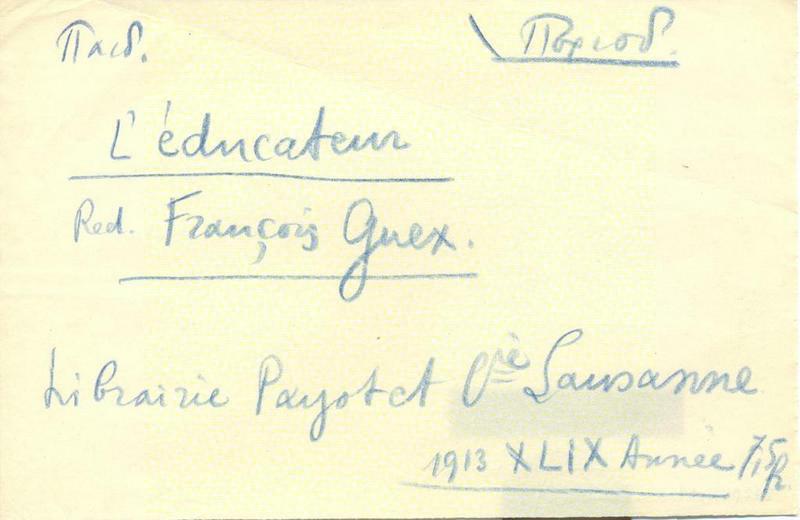 Παιδ. Περιοδ.
L'éducateur
Red. François Guex.
Librairie Payot et Cie Lausanne
1913 XLIX Année